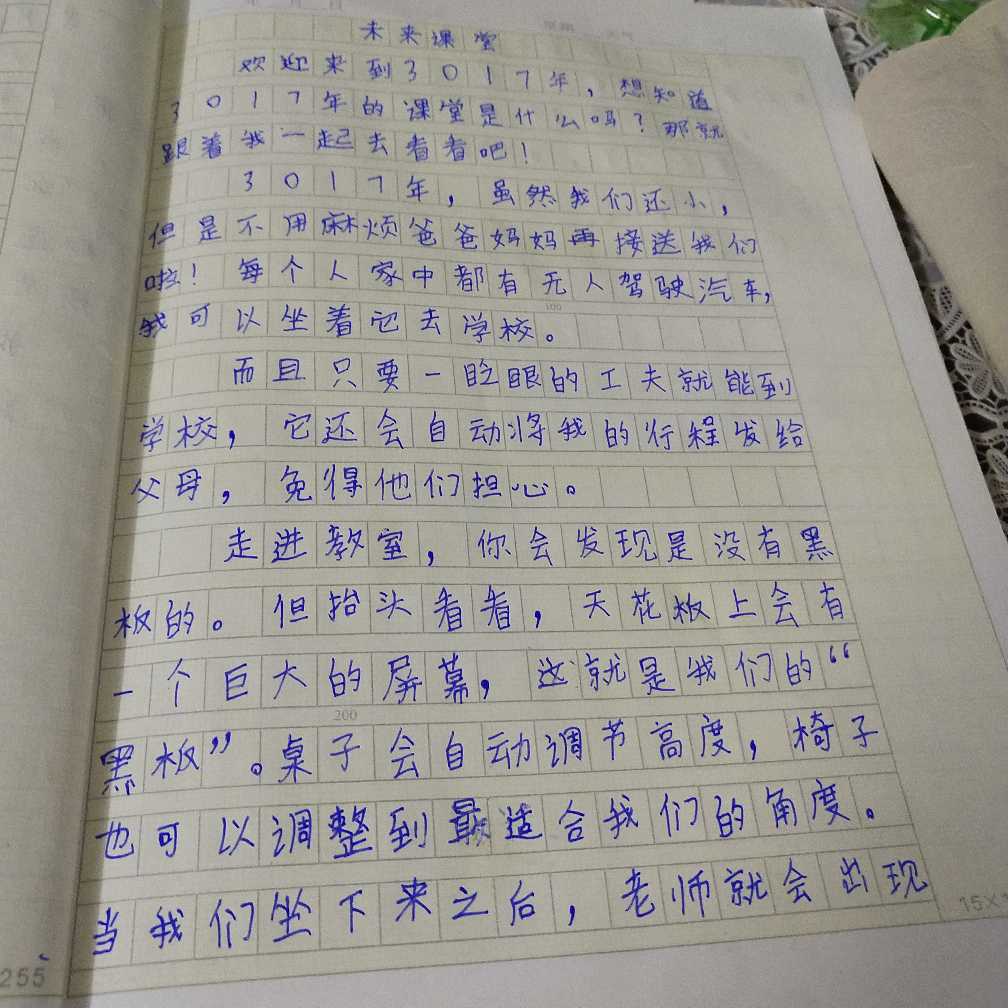 未来课堂
欢迎来到3017年，想知道
3017年的课堂是什么吗？那就
跟着我一起去看看吧！
3017年，虽然我们还小，
但是不用麻烦爸爸妈妈再接送我们
啦！每个人家中都有无人驾驶汽车，
我可以坐着它去学校。
100
而且只要一眨眼的工夫就能到
学校，它还会自动将我的行程发给
父母，免得他们担心。
走进教室，你会发现是没有黑
板的。但抬头看看，天花板上会有
一个巨大的屏幕，这就是我们的“
200
黑板”。桌子会自动调节高度，椅子
也可以调整到最适合我们的角度。
当我们坐下来之后，老师就会出现
255